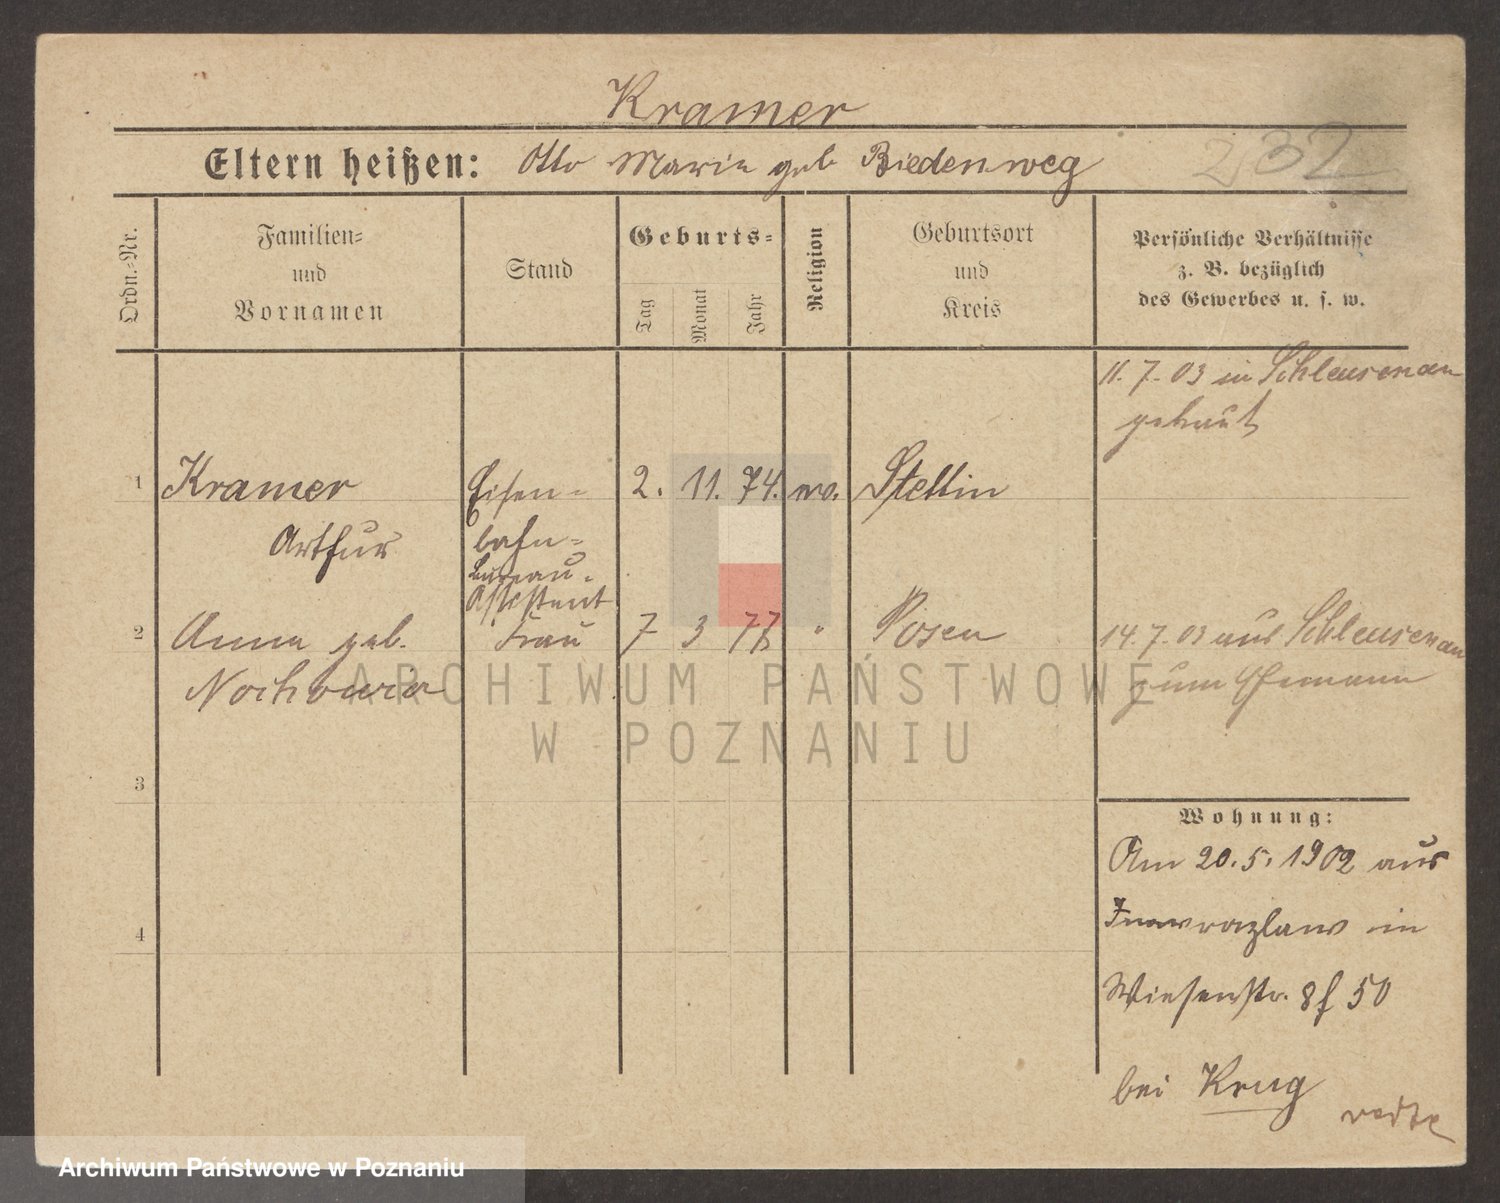 Kramer
232
Eltern heißen: Otto Marie geb. Biedenweg
Ordn.=Nr.
Familien=
und
Vornamen
Stand
Geburts=
Tag
Monat
Jahr
Religion
Geburtsort
und
Kreis
Persönliche Verhältnisse
z. B. bezüglich
des Gewerbes u. s. w.
11. 7. 03 in Schleusenau
getraut
1 Kramer Eisen= 2. 11. 74. ev. Stettin
Arthur bahn=
Bureau=
Assistent
2 Anna geb. Frau 7 3 77 " Posen 14. 7. 03 aus Schleusenau
zum Ehemann
3
Wohnung:
Am 20. 5. 1902 aus
4 Inowrazlaw in
Wiesenstr. 8 f 50
bei Krug
ARCHIWUM PAŃSTWOWE
W POZNANIU
Archiwum Państwowe w Poznaniu